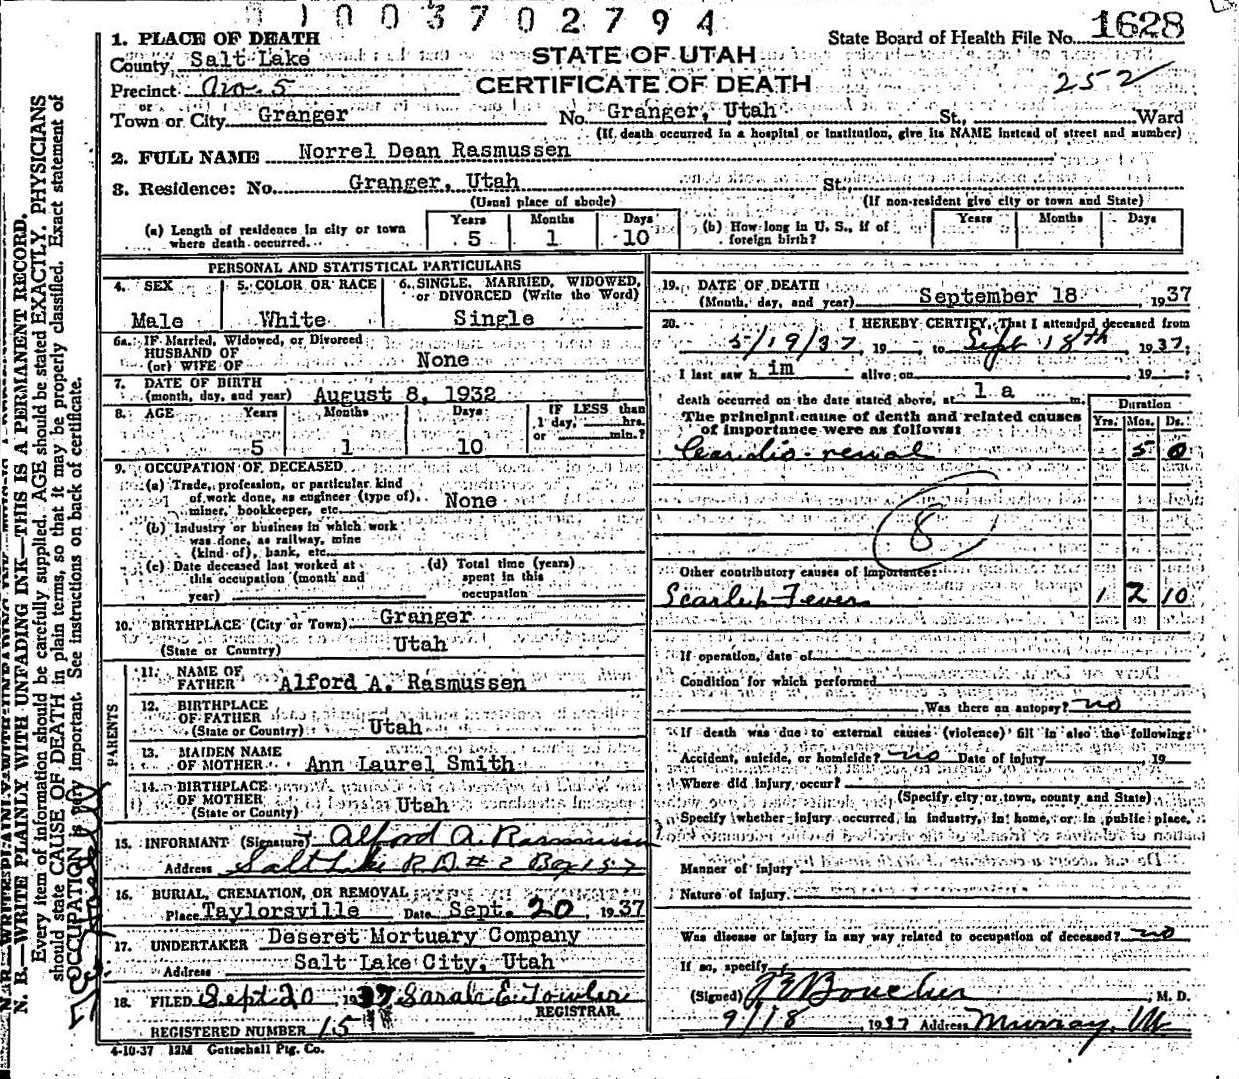 0 1 0 0 3 7 0 2 7 9 4
1. PLACE OF DEATH
State Board of Health File No. 1628
County Salt Lake
STATE OF UTAH
Precinct No. 5
CERTIFICATE OF DEATH
252
or
Town or City Granger No. Granger, Utah St., Ward
(If death occurred in a hospital or institution, give its NAME instead of street and number)
2. FULL NAME Norrel Dean Rasmussen
3. Residence: No. Granger, Utah St.
(Usual place of abode)
(If non-resident give city or town and State)
(a) Length of residence in city or town where death occurred
Years 5 Months 1 Days 10
(b) How long in U. S., if of foreign birth?
Years Months Days
PERSONAL AND STATISTICAL PARTICULARS
4. SEX
Male
5. COLOR OR RACE
White
6. SINGLE, MARRIED, WIDOWED, or DIVORCED (Write the Word)
Single
6a. IF Married, Widowed, or Divorced
HUSBAND OF
(or) WIFE OF None
7. DATE OF BIRTH
(month, day, and year) August 8, 1932
8. AGE Years 5 Months 1 Days 10
IF LESS than
1 day, hrs.
or min.?
9. OCCUPATION OF DECEASED
(a) Trade, profession, or particular kind
of work done, as engineer (type of), None
miner, bookkeeper, etc.
(b) Industry or business in which work
was done, as railway, mine
(kind of), bank, etc.
(c) Date deceased last worked at
this occupation (month and
year)
(d) Total time (years)
spent in this
occupation
10. BIRTHPLACE (City or Town) Granger
(State or Country) Utah
PARENTS
11. NAME OF
FATHER Alford A. Rasmussen
12. BIRTHPLACE
OF FATHER
(State or Country) Utah
13. MAIDEN NAME
OF MOTHER Ann Laurel Smith
14. BIRTHPLACE
OF MOTHER Utah
(State or County)
15. INFORMANT (Signature) Alford A. Rasmussen
Address Salt Lake R.D. #2 Box 157
16. BURIAL, CREMATION, OR REMOVAL
Place Taylorsville Date Sept. 20, 1937
17. UNDERTAKER Deseret Mortuary Company
Address Salt Lake City, Utah
18. FILED Sept 20 1937 Sarah E. Fowler
REGISTRAR.
REGISTERED NUMBER 15
4-10-37 12M Gottschall Ptg. Co.
19. DATE OF DEATH
(Month, day, and year) September 18, 1937
20. I HEREBY CERTIFY, That I attended deceased from
5/19/37, 19 to Sept 18th 1937;
I last saw h im alive on 19 ;
death occurred on the date stated above, at 1 a m.
The principal cause of death and related causes
of importance were as follows:
Duration
Yrs. Mos. Ds.
Cardio-renal 5 0
8
Other contributory causes of importance:
Scarlet Fever 1 2 10
If operation, date of
Condition for which performed
Was there an autopsy? no
If death was due to external causes (violence) fill in also the following:
Accident, suicide, or homicide? no Date of injury 19
Where did injury occur?
(Specify city or town, county and State)
Specify whether injury occurred in industry, in home, or in public place.
Manner of injury
Nature of injury
Was disease or injury in any way related to occupation of deceased? no
If so, specify
(Signed) Boucher, M. D.
9/18, 1937 Address Murray, Ut
N. B.—WRITE PLAINLY WITH UNFADING INK—THIS IS A PERMANENT RECORD.
Every item of information should be carefully supplied. AGE should be stated EXACTLY. PHYSICIANS
should state CAUSE OF DEATH in plain terms, so that it may be properly classified. Exact statement of
OCCUPATION is very important. See instructions on back of certificate.